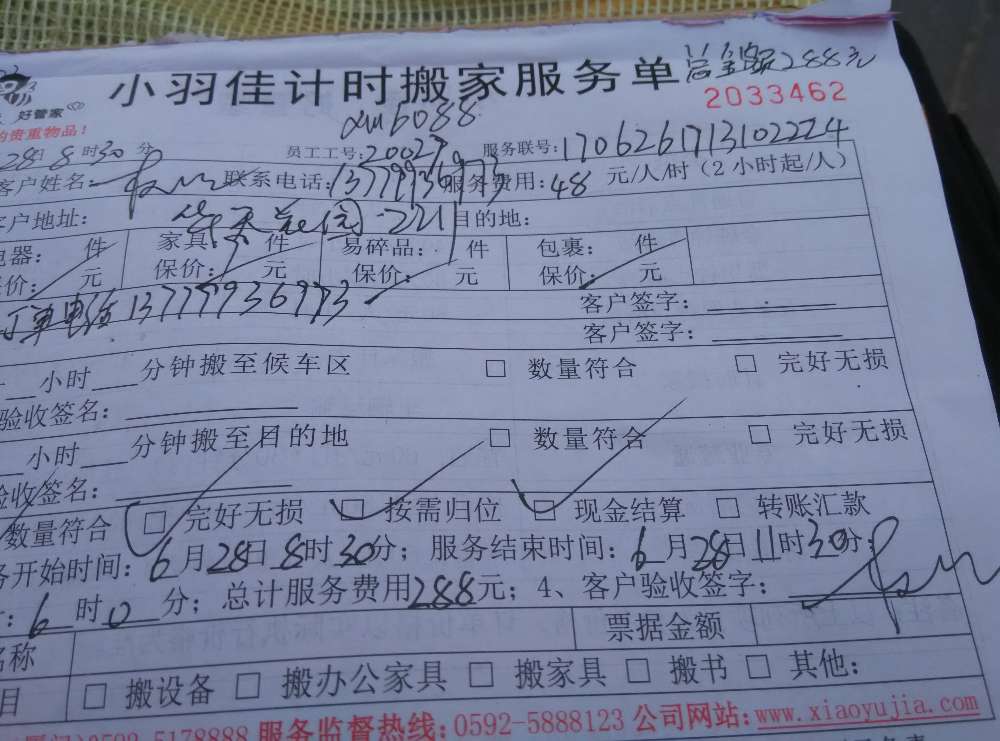 小羽佳计时搬家服务单 总金额288元
好管家 2033462
的贵重物品！ 6088
28日8时30分 员工工号：20027 服务联号：1706261713102224
客户姓名： 联系电话：13779936973 服务费用：48元/人/时（2小时起/人）
客户地址： 花园 221 目的地：
电器： 件 家具： 件 易碎品： 件 包裹： 件
保价： 元 保价： 元 保价： 元 保价： 元
订单电话13779936973 客户签字：
客户签字：
小时 分钟搬至候车区 □ 数量符合 □ 完好无损
验收签名：
小时 分钟搬至目的地 □ 数量符合 □ 完好无损
验收签名：
数量符合 □ 完好无损 □ 按需归位 □ 现金结算 □ 转账汇款
务开始时间：6月28日8时30分；服务结束时间：6月28日11时30分；
：6时0分；总计服务费用288元；4、客户验收签字：
名称 票据金额
目 □ 搬设备 □ 搬办公家具 □ 搬家具 □ 搬书 □ 其他：
0592-5178888 服务监督热线：0592-5888123 公司网站：www.xiaoyujia.com